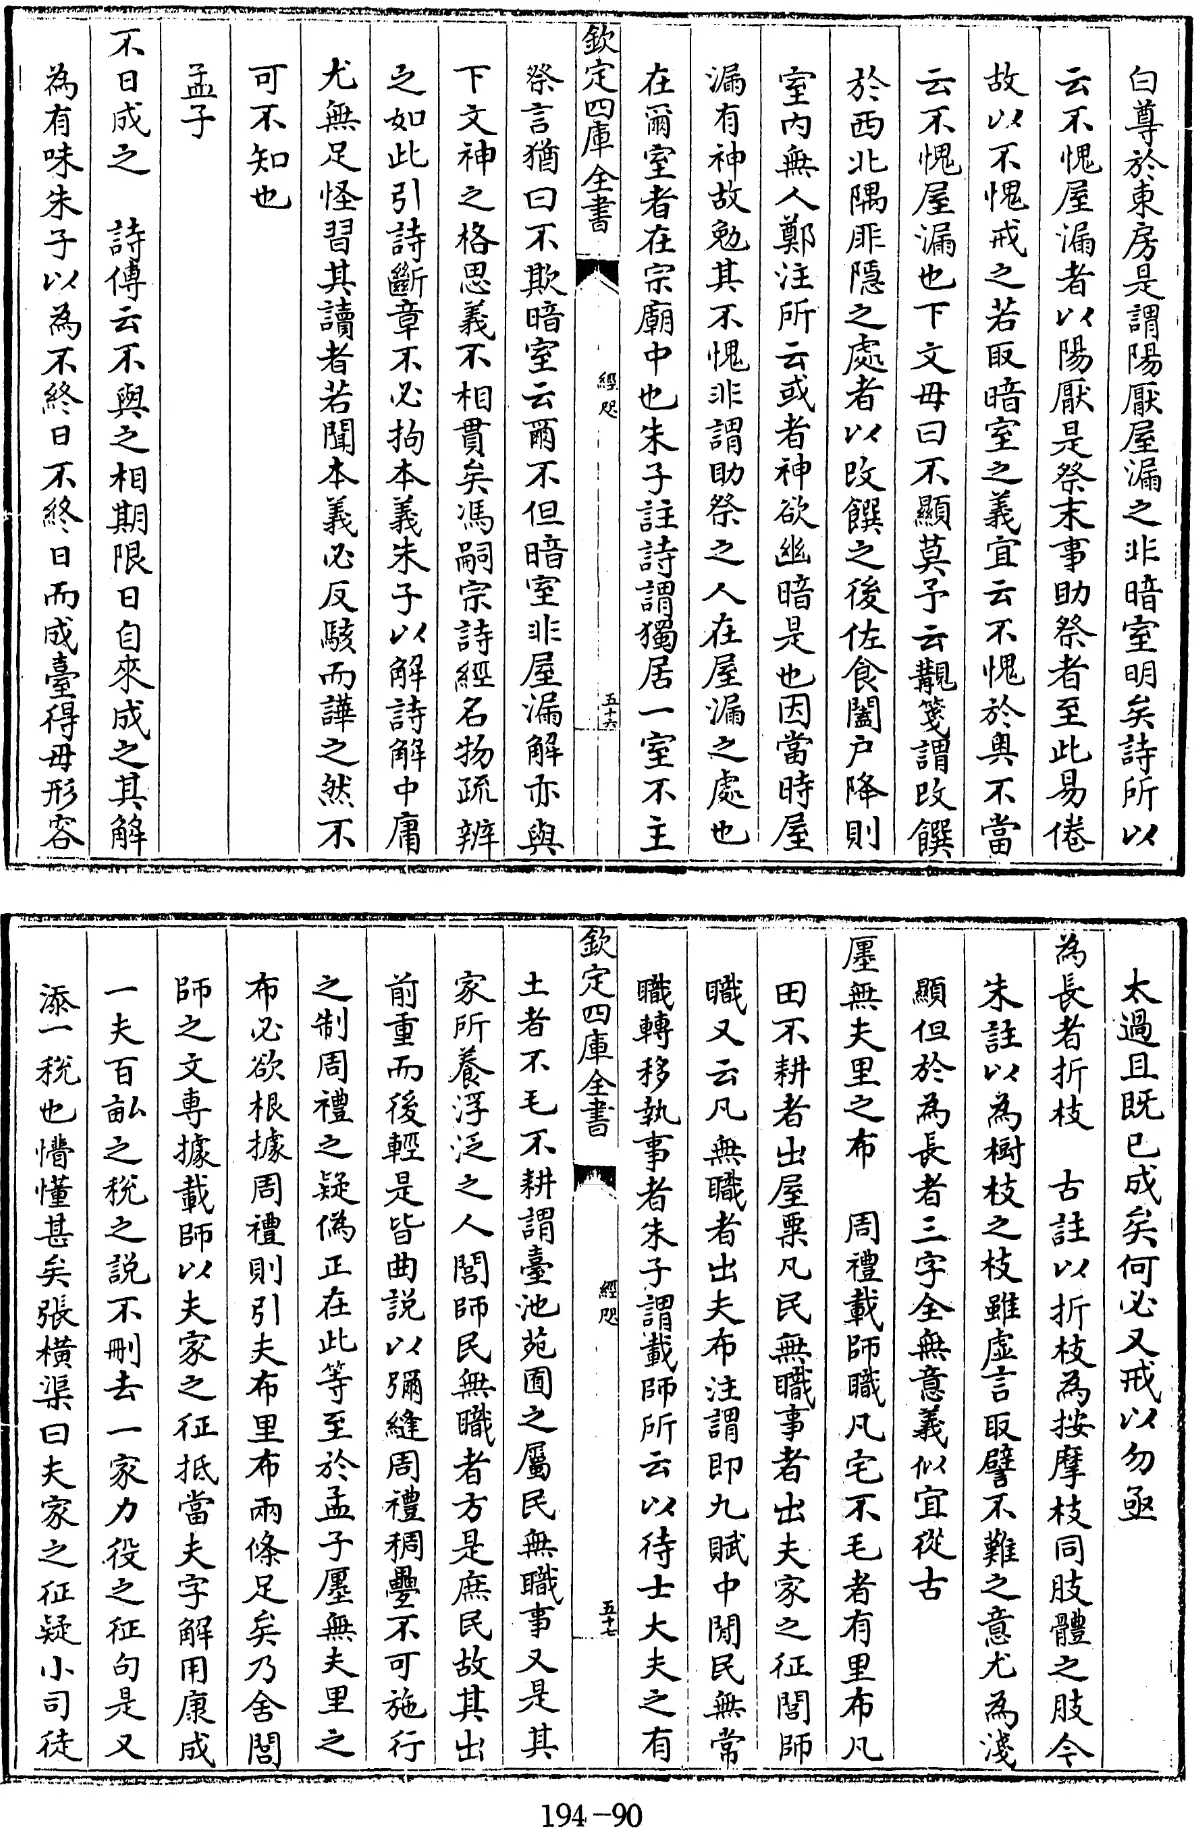 白尊於東房是謂陽厭屋漏之非暗室明矣詩所以
云不愧屋漏者以陽厭是祭末事助祭者至此易倦
故以不愧戒之若取暗室之義宜云不愧於奥不當
云不愧屋漏也下文毋曰不顯莫予云覯箋謂改饌
於西北隅厞隱之處者以改饌之後佐食闔户降則
室内無人鄭注所云或者神欲幽暗是也因當時屋
漏有神故勉其不愧非謂助祭之人在屋漏之處也
在爾室者在宗廟中也朱子註詩謂獨居一室不主
欽定四庫全書 經咫 五十六
祭言猶曰不欺暗室云爾不但暗室非屋漏解亦與
下文神之格思義不相貫矣馮嗣宗詩經名物疏辨
之如此引詩斷章不必拘本義朱子以解詩解中庸
尤無足怪習其讀者若聞本義必反駭而譁之然不
可不知也
孟子
不日成之 詩傳云不與之相期限日自來成之其解
為有味朱子以為不終日不終日而成臺得毋形容
太過且既已成矣何必又戒以勿亟
為長者折枝 古註以折枝為按摩枝同肢體之肢今
朱註以為樹枝之枝雖虚言取譬不難之意尤為淺
顯但於為長者三字全無意義似宜從古
廛無夫里之布 周禮載師職凡宅不毛者有里布凡
田不耕者出屋粟凡民無職事者出夫家之征閭師
職又云凡無職者出夫布注謂即九賦中閒民無常
職轉移執事者朱子謂載師所云以待士大夫之有
欽定四庫全書 經咫 五十七
土者不毛不耕謂臺池苑囿之屬民無職事又是其
家所養浮泛之人閭師民無職者方是庶民故其出
前重而後輕是皆曲説以彌縫周禮稠疊不可施行
之制周禮之疑偽正在此等至於孟子廛無夫里之
布必欲根據周禮則引夫布里布兩條足矣乃舍閭
師之文專據載師以夫家之征抵當夫字解用康成
一夫百畝之税之説不刪去一家力役之征句是又
添一税也懵懂甚矣張横渠曰夫家之征疑小司徒
194-90